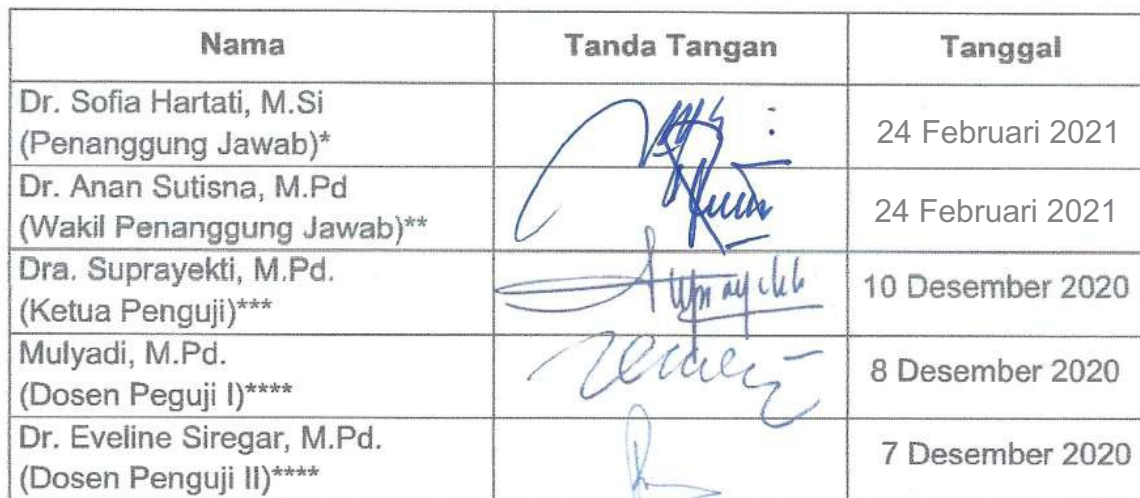 Nama Tanda Tangan Tanggal
Dr. Sofia Hartati, M.Si
(Penanggung Jawab)*
24 Februari 2021
Dr. Anan Sutisna, M.Pd
(Wakil Penanggung Jawab)**
24 Februari 2021
Dra. Suprayekti, M.Pd.
(Ketua Penguji)***
10 Desember 2020
Mulyadi, M.Pd.
(Dosen Peguji I)****
8 Desember 2020
Dr. Eveline Siregar, M.Pd.
(Dosen Penguji II)****
7 Desember 2020